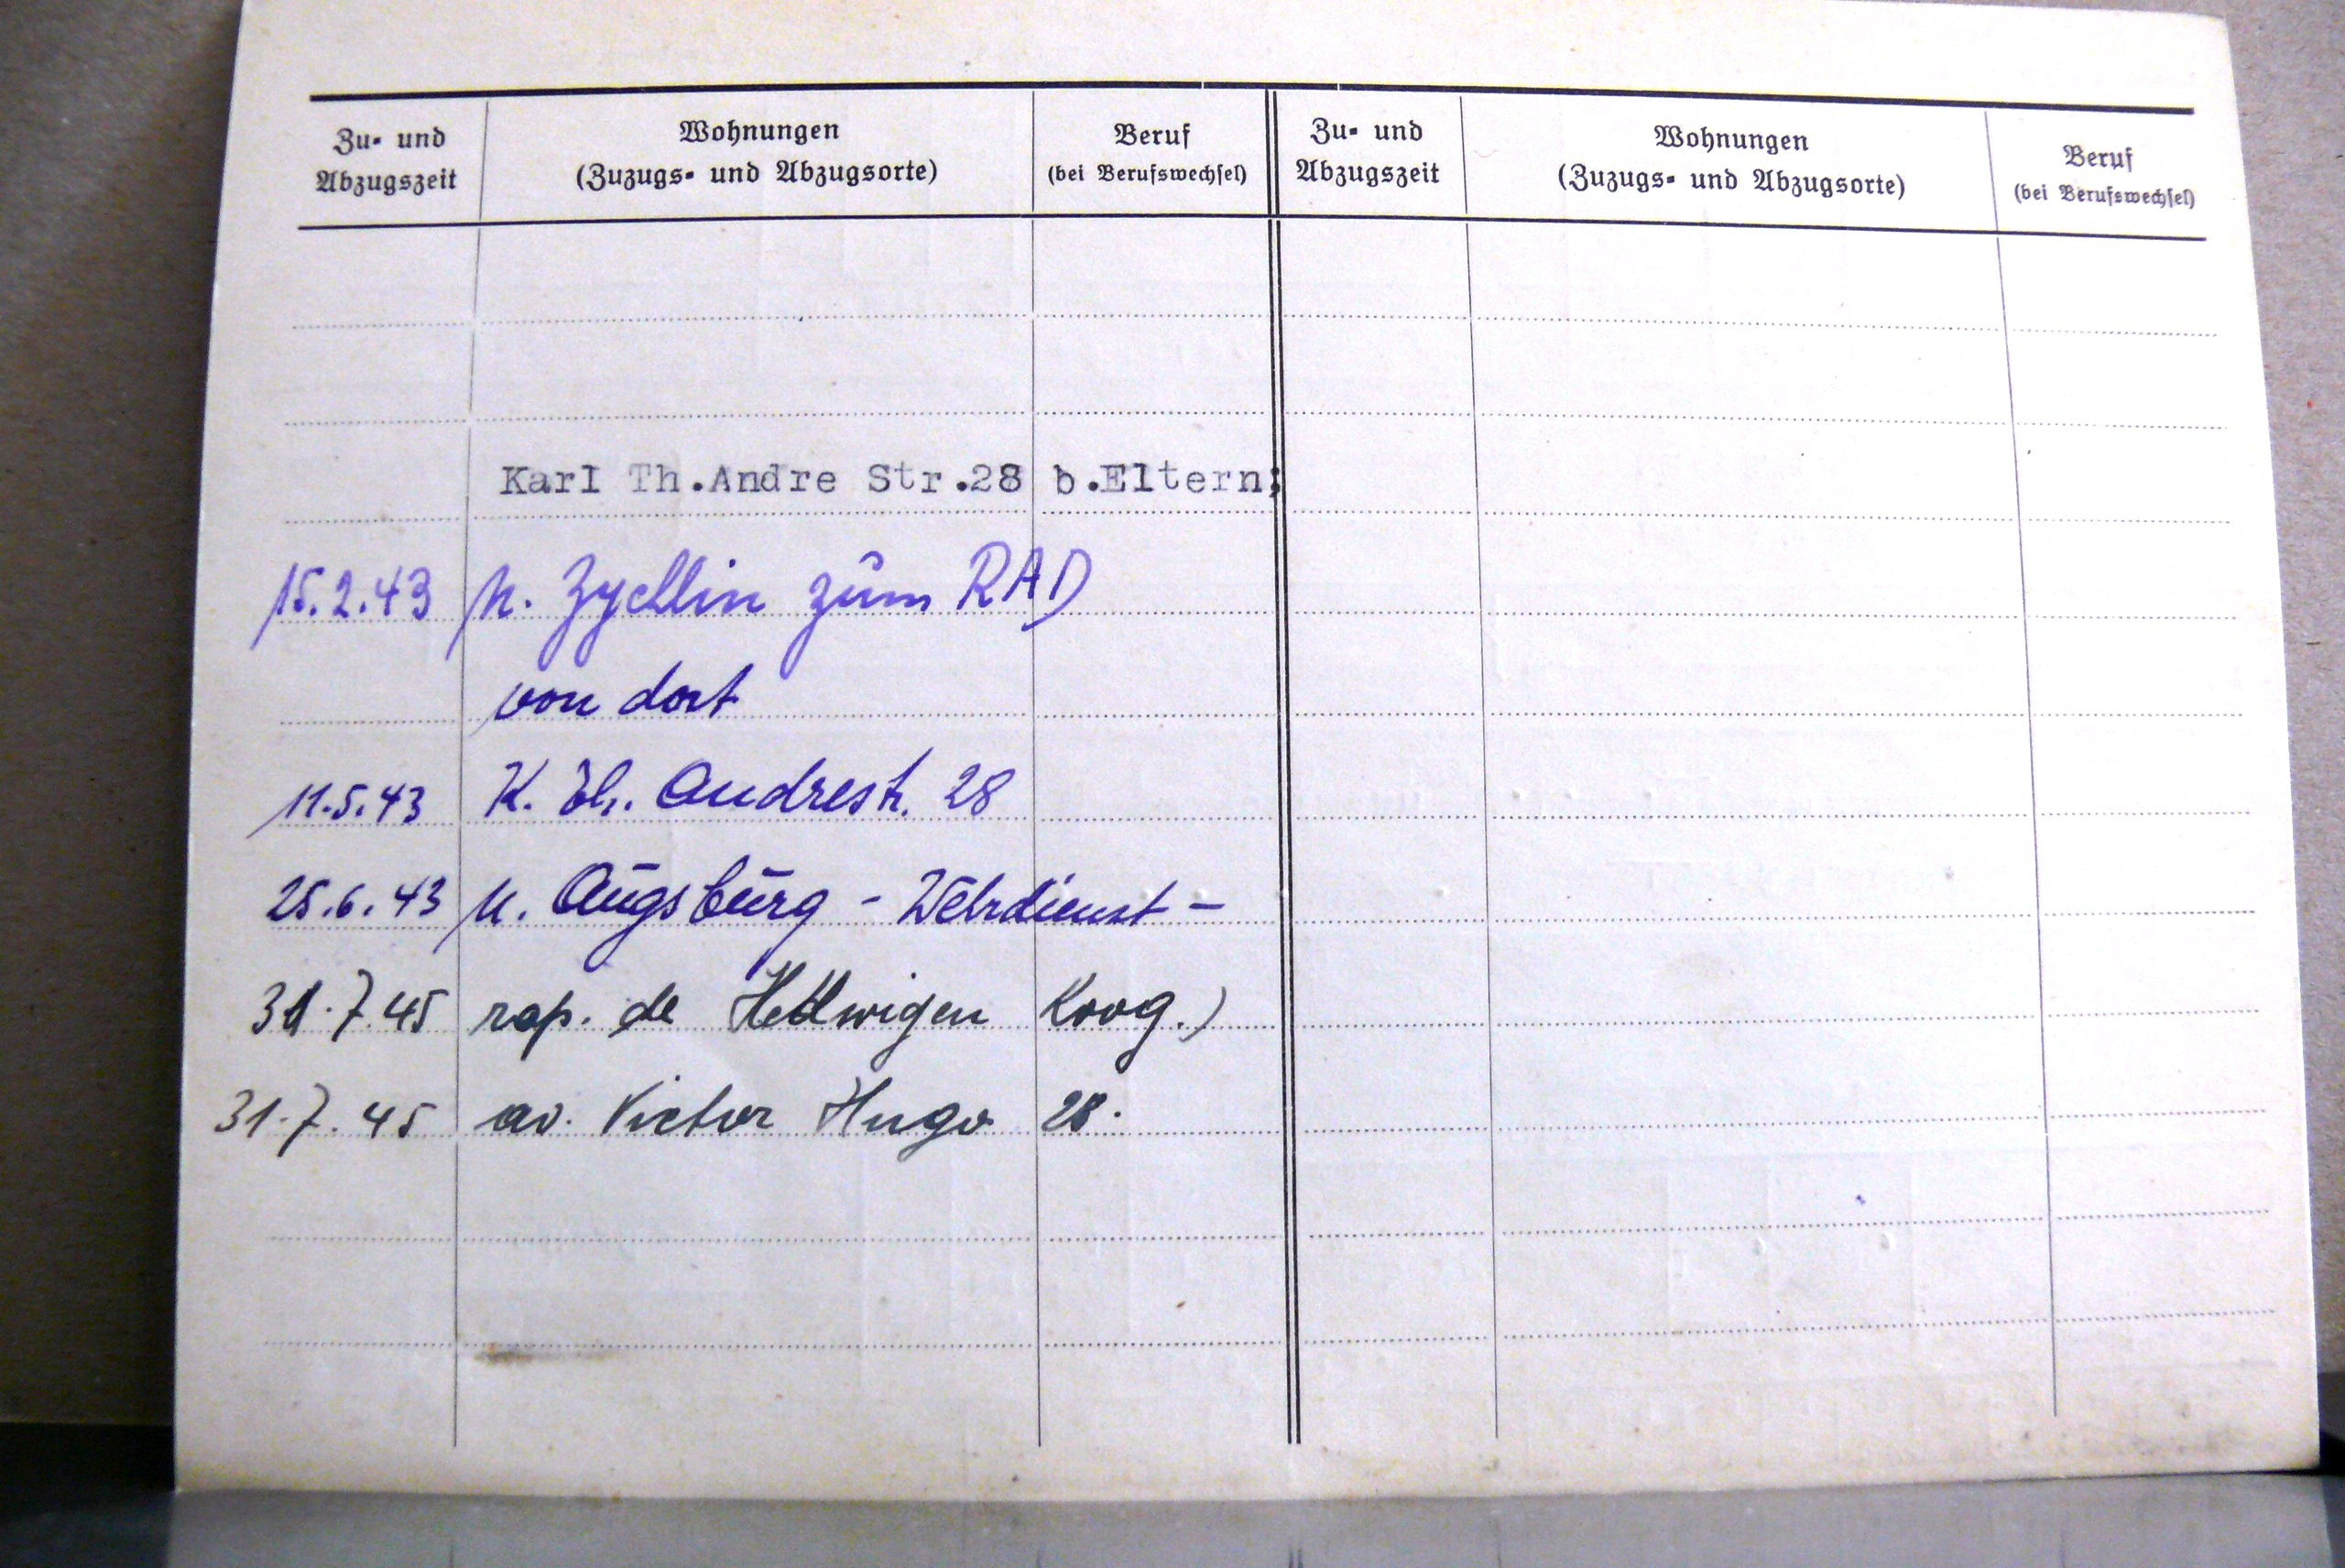 Zu- und Abzugszeit
Wohnungen
(Zuzugs- und Abzugsorte)
Beruf
(bei Berufswechsel)
Zu- und Abzugszeit
Wohnungen
(Zuzugs- und Abzugsorte)
Beruf
(bei Berufswechsel)
Karl Th.Andre Str.28 b.Eltern;
15.2.43 n. Zychlin zum RAD
von dort
11.5.43 K. Th. Andrestr. 28
25.6.43 n. Augsburg - Wehrdienst -
31.7.45 rap. de Hedwigen Koog.)
31.7.45 av. Victor Hugo 28.